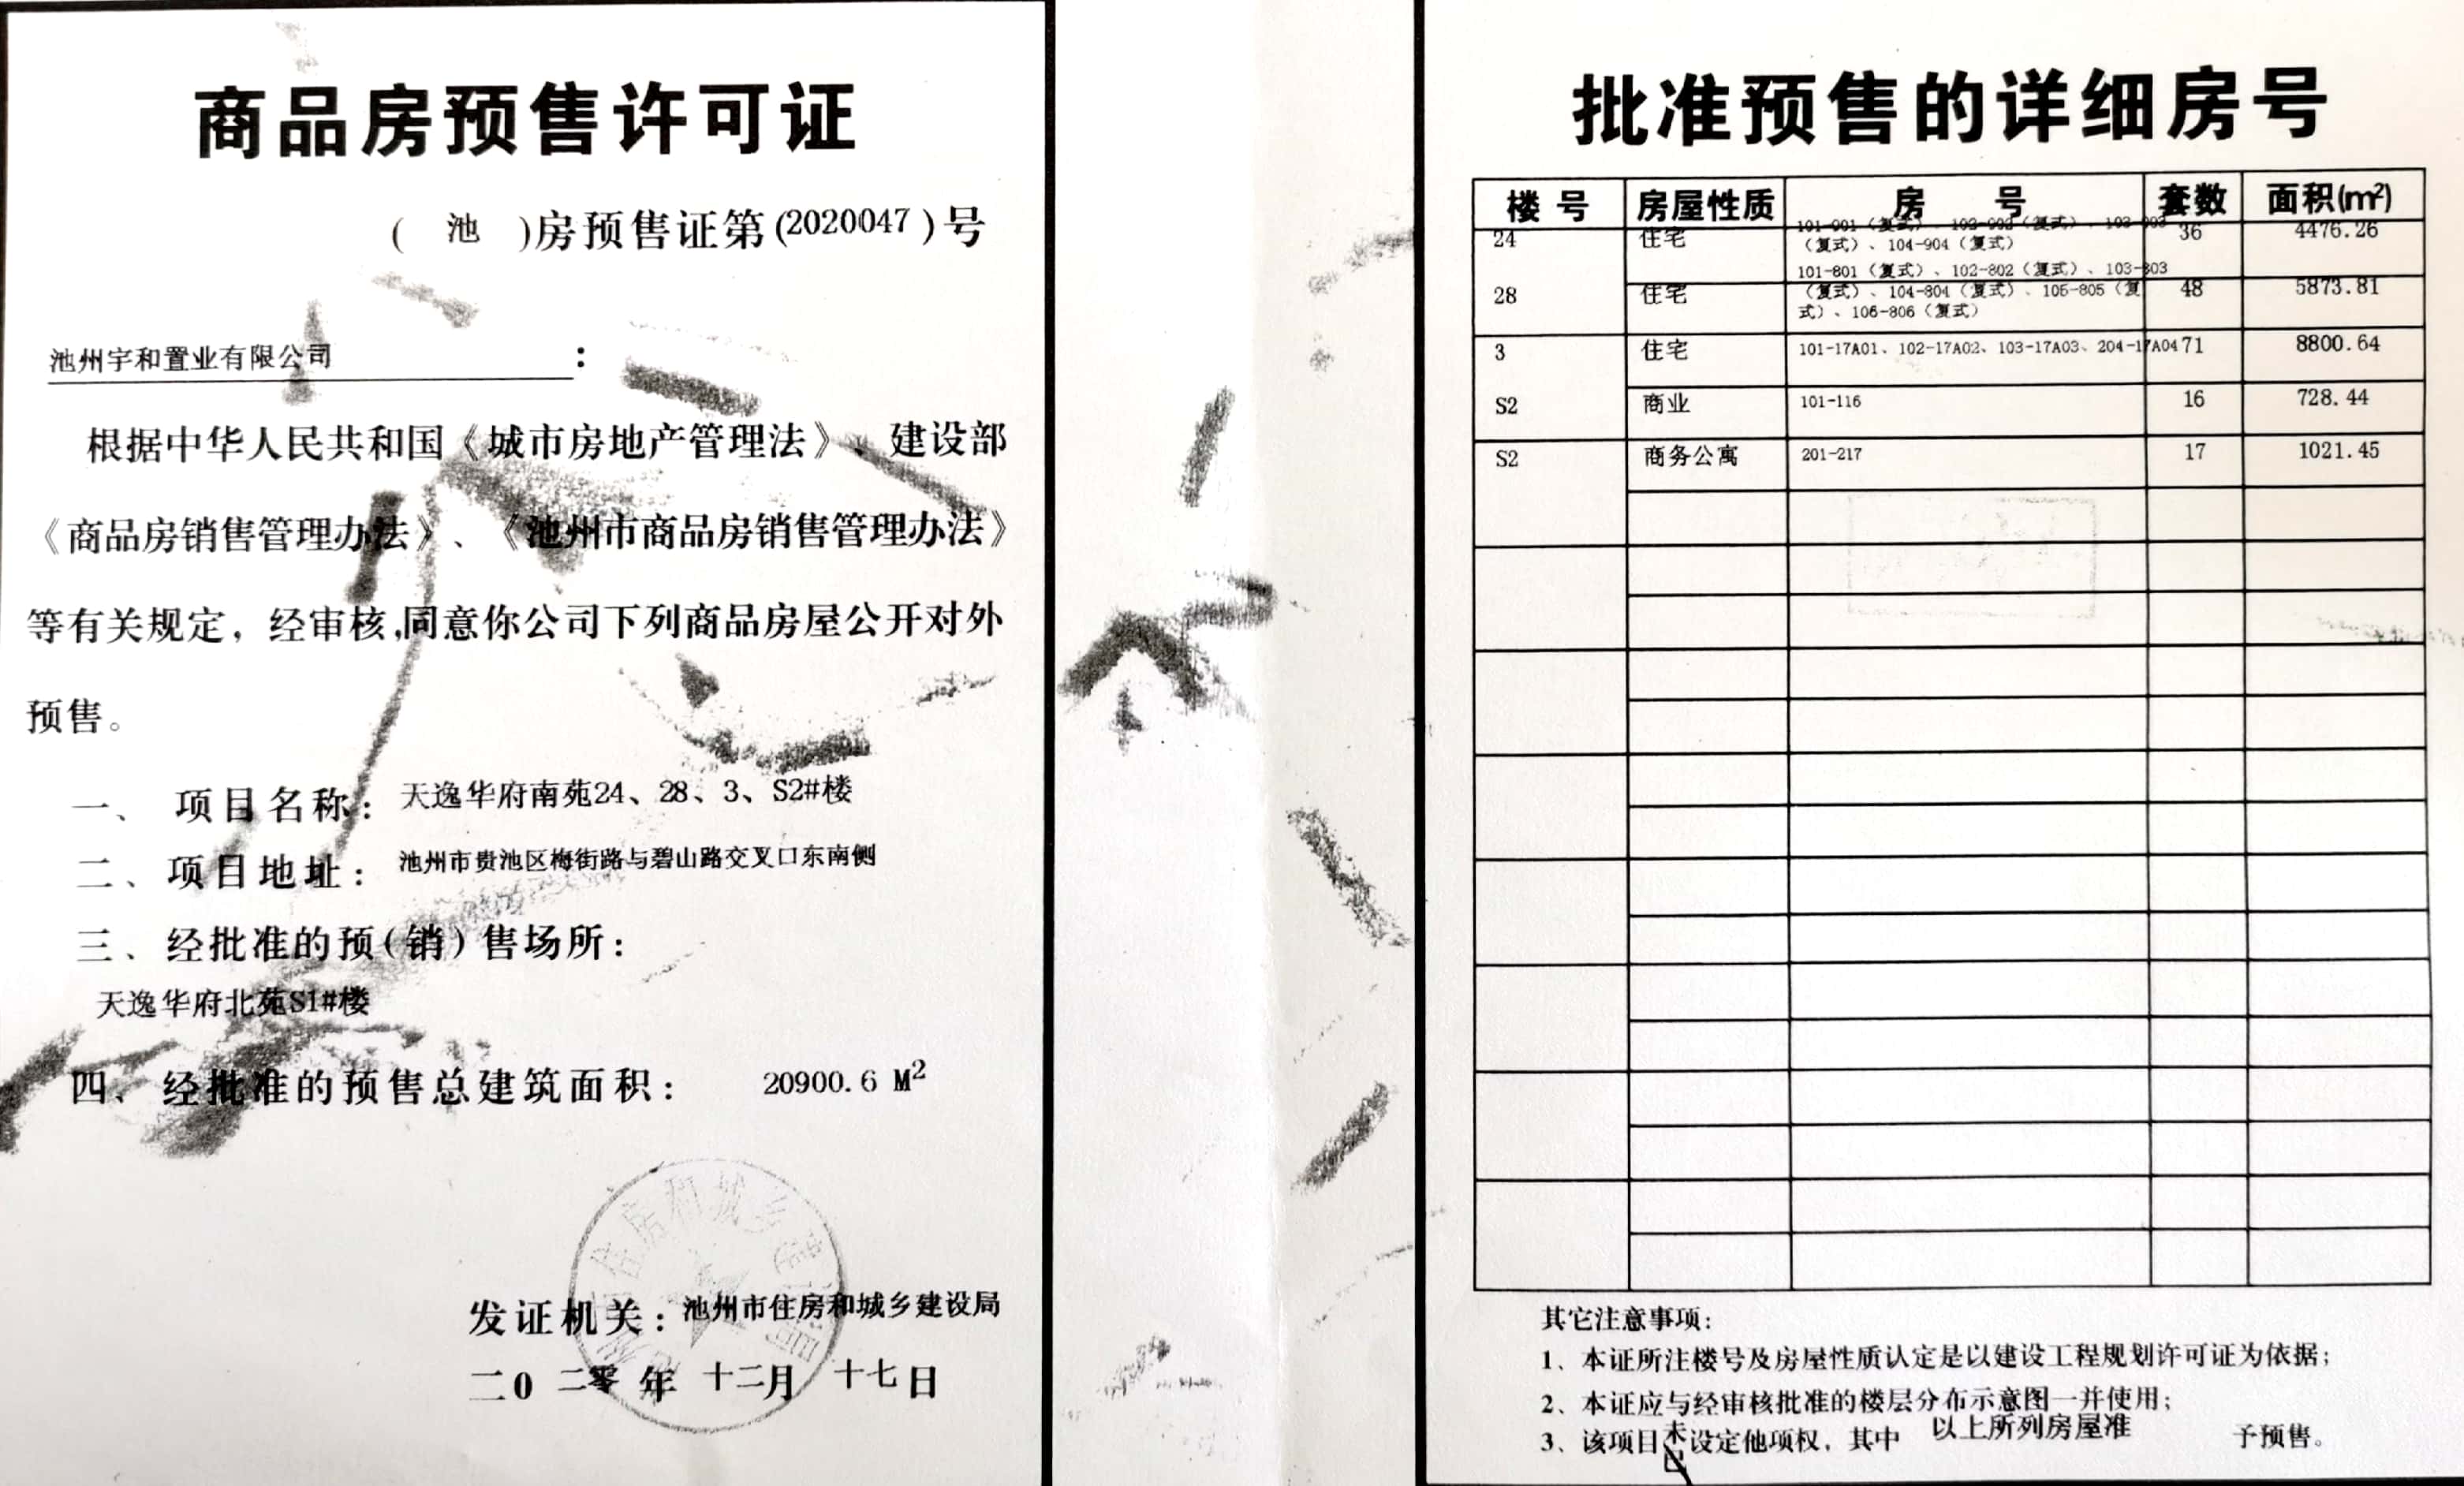 商品房预售许可证
( 池 )房预售证第(2020047)号
池州宇和置业有限公司:
根据中华人民共和国《城市房地产管理法》、建设部
《商品房销售管理办法》、《池州市商品房销售管理办法》
等有关规定，经审核,同意你公司下列商品房屋公开对外
预售。
一、项目名称: 天逸华府南苑24、28、3、S2#楼
二、项目地址: 池州市贵池区梅街路与碧山路交叉口东南侧
三、经批准的预(销)售场所:
天逸华府北苑S1#楼
四、经批准的预售总建筑面积: 20900.6 M²
发证机关: 池州市住房和城乡建设局
二0二零年十二月十七日
批准预售的详细房号
楼号 房屋性质 房号 套数 面积(m²)
24 住宅 101-901（复式）、102-902（复式）、103-903 36 4476.26
（复式）、104-904（复式）
101-801（复式）、102-802（复式）、103-803
28 住宅 （复式）、104-804（复式）、105-805（复 48 5873.81
式）、106-806（复式）
3 住宅 101-17A01、102-17A02、103-17A03、204-17A04 71 8800.64
S2 商业 101-116 16 728.44
S2 商务公寓 201-217 17 1021.45
其它注意事项:
1、本证所注楼号及房屋性质认定是以建设工程规划许可证为依据;
2、本证应与经审核批准的楼层分布示意图一并使用;
3、该项目未设定他项权，其中 以上所列房屋准 予预售。